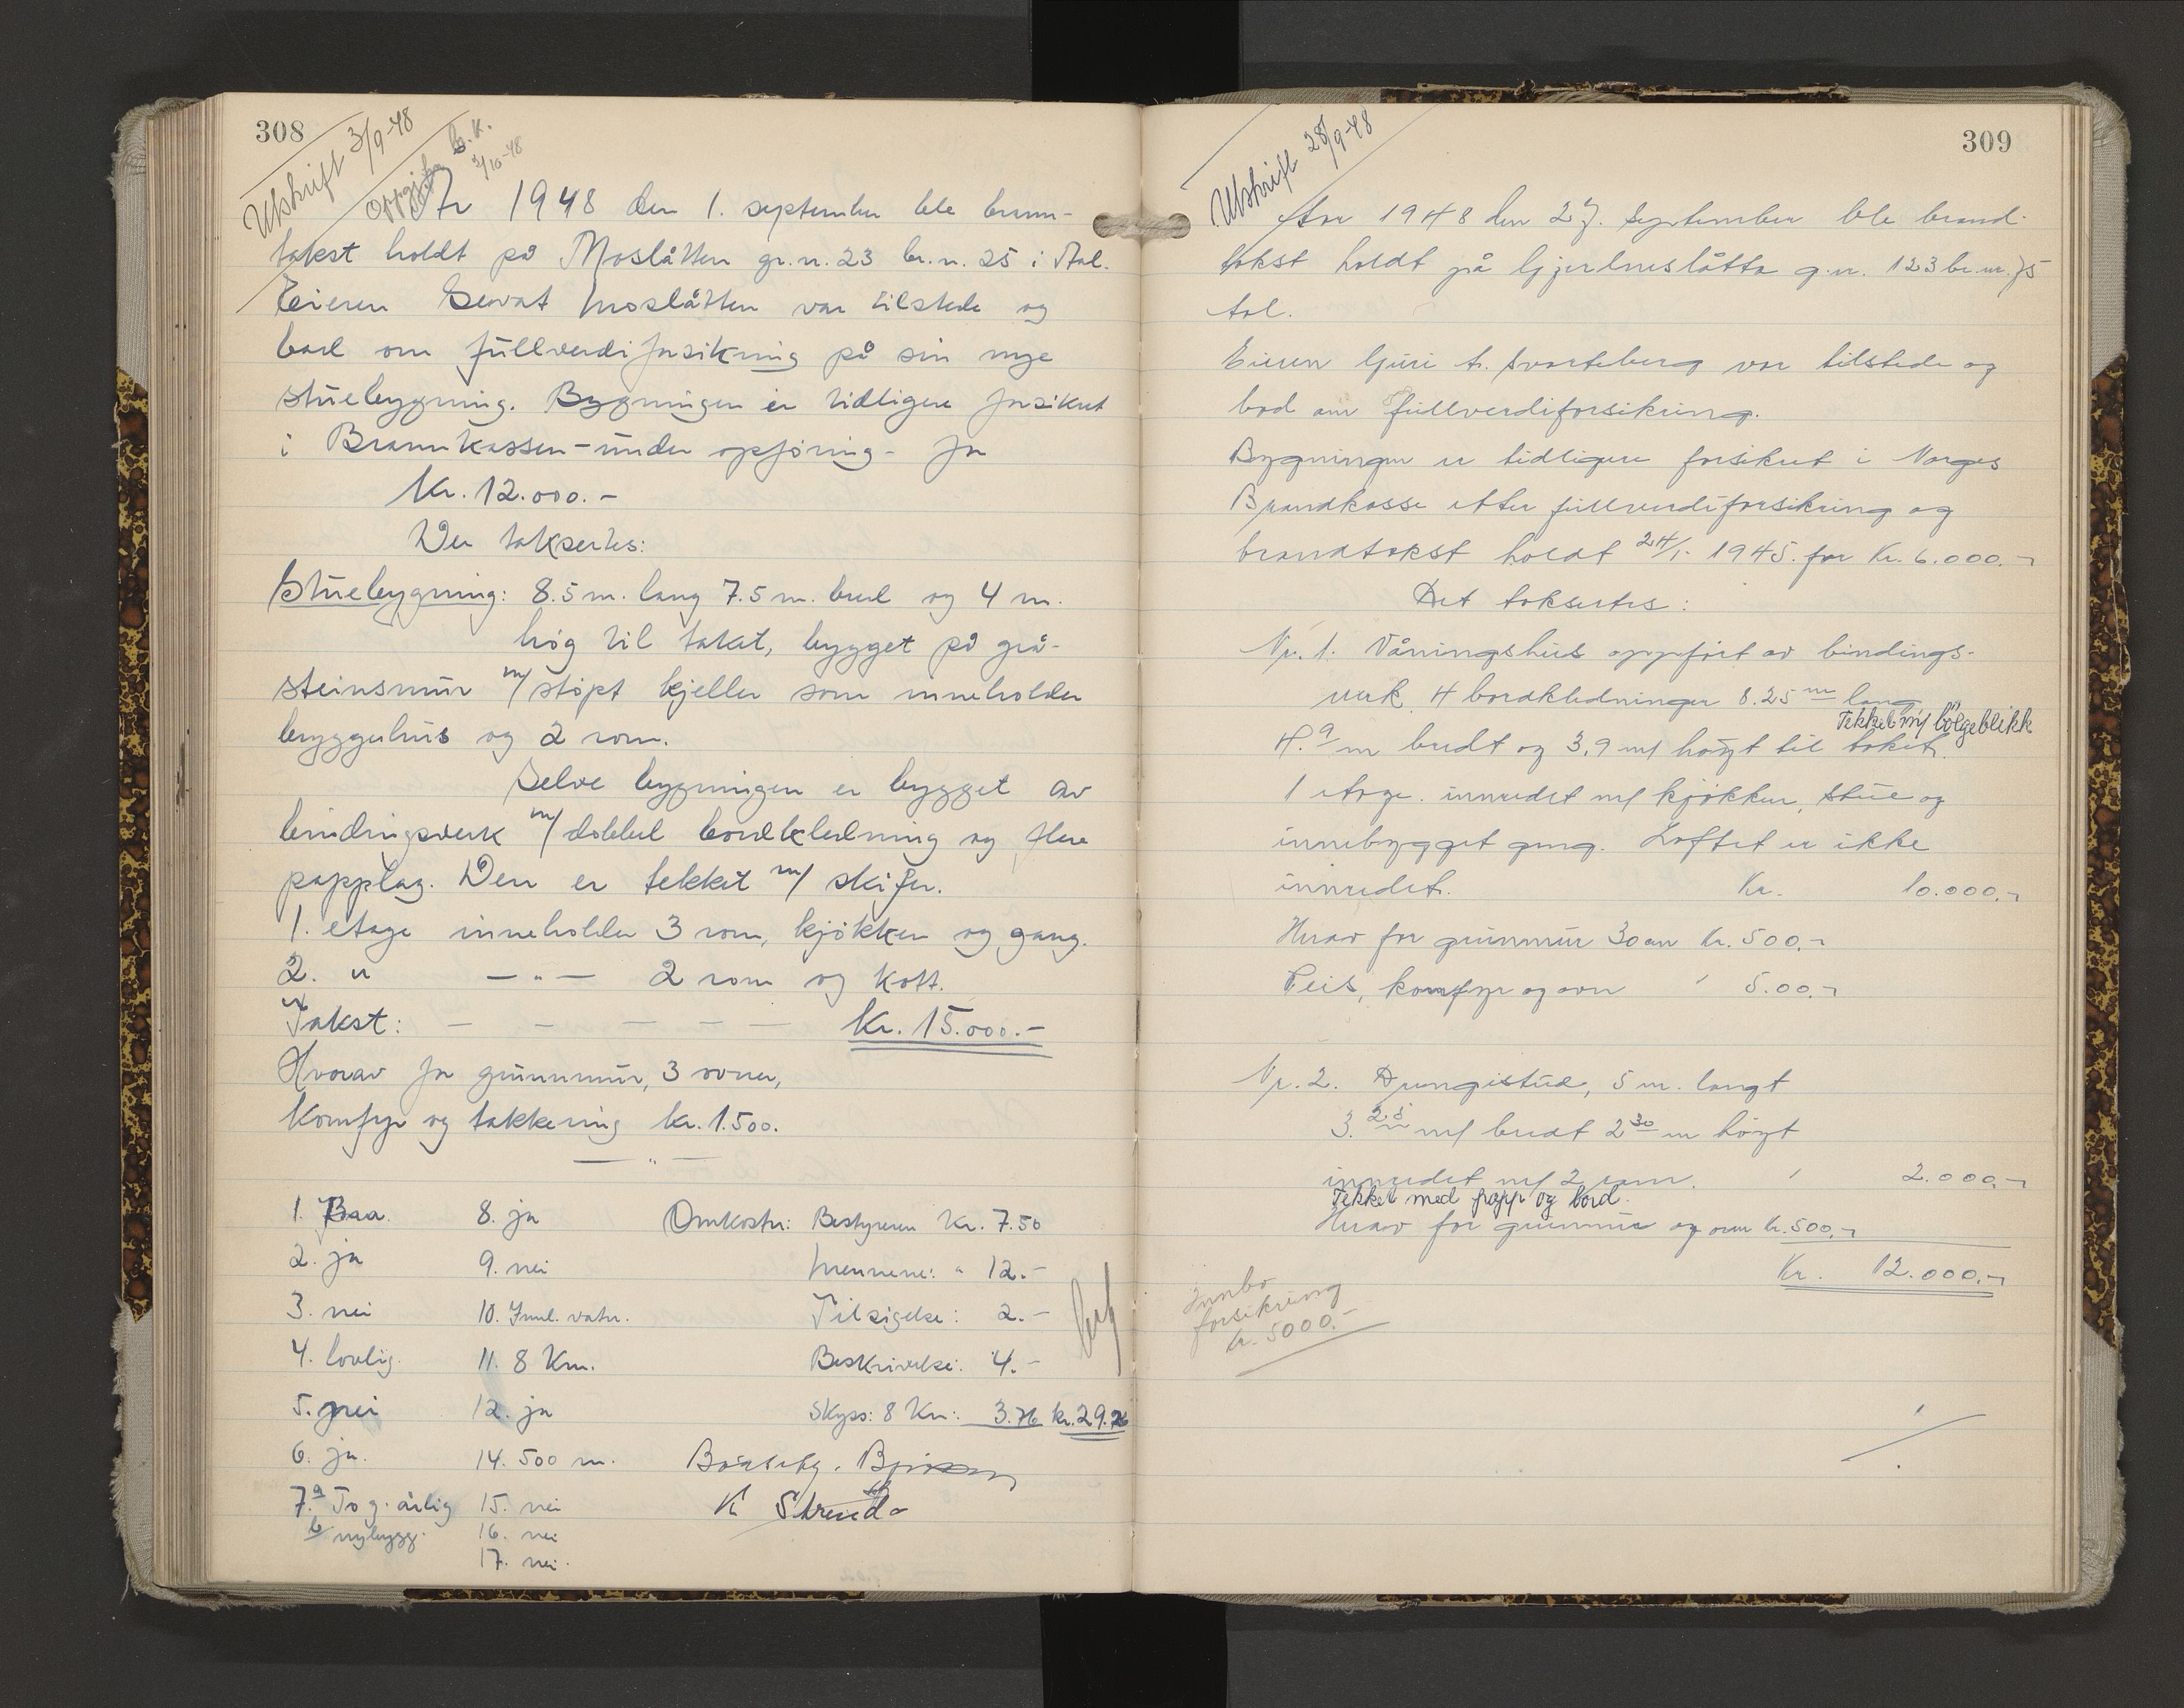 308
Utskrift 3/9-48
Oppgitt b.k.
2/10-48
År 1948 den 1. september ble brann-
takst holdt på Moslåtten gr.n. 23 br.n. 25 i Aal.
Eieren Sevat Moslåtten var tilstede og
bad om fullverdiforsikring på sin nye
stuebygning. Bygningen er tidligere forsikret
i Brannkassen - under opføring - for
Kr. 12.000.-
Der taksertes:
Stuebygning: 8.5 m. lang 7.5 m. bred og 4 m.
høg til taket, bygget på grå-
steinsmur m/ støpt kjeller som inneholder
bryggerhus og 2 rom.
Selve bygningen er bygget av
bindingsverk m/ dobbel bordkledning og flere
papplag. Den er tekket m/ skifer.
1. etage inneholder 3 rom, kjøkken og gang.
2. " — " — 2 rom og kott.
Takst: — — — — — Kr. 15.000.-
Hvorav for grunnmur, 3 ovner,
Komfyr og takkering kr. 1.500.
— " —
1. Baa 8. ja Omkostn: Bestyreren Kr. 7.50
2. ja 9. nei Mennene: " 12.-
3. nei 10. Innl. vatn. Tilsigelse: 2.-
4. lovlig. 11. 8 Km. Beskrivelse: 4.-
5. nei 12. ja Skyss: 8 Km: 3.76 kr. 29.26
6. ja. 14. 500 m.
7. a To g. årlig 15. nei K Strand
b nybygg. 16. nei
17. nei.
309
Utskrift 28/9-48
Aar 1948 den 27. September ble brand-
takst holdt på g.nr. 123 br.nr. 75
Aal.
Eieren Guri Svarteberg var tilstede og
bad om fullverdiforsikring.
Bygningen er tidligere forsikret i Norges
Brandkasse etter fullverdiforsikring og
brandtakst holdt 24/1- 1945. for Kr. 6.000.-
Det taksertes:
Nr. 1. Våningshus oppført av bindings-
verk, 4 bordkledninger 8.25 m lang,
Tekket m/ bølgeblikk
4.9 m bredt og 3,9 m/ høgt til taket.
1 etage. innredet m/ kjøkken, stue og
innebygget gang. Loftet er ikke
innredet. Kr. 10.000.-
Herav for grunnmur 30 cm Kr. 500.-
Peis, komfyr og ovn " 5.00.-
Nr. 2. Drengistue, 5 m. langt
3.25 m/ bredt 2 30 m høgt
innredet m/ 2 rom. " 2.000.-
Tekket med papp og bord.
Herav for grunnmur og ovn kr. 500.-
Kr. 12.000.-
Innbo
forsikring
kr. 5000.-